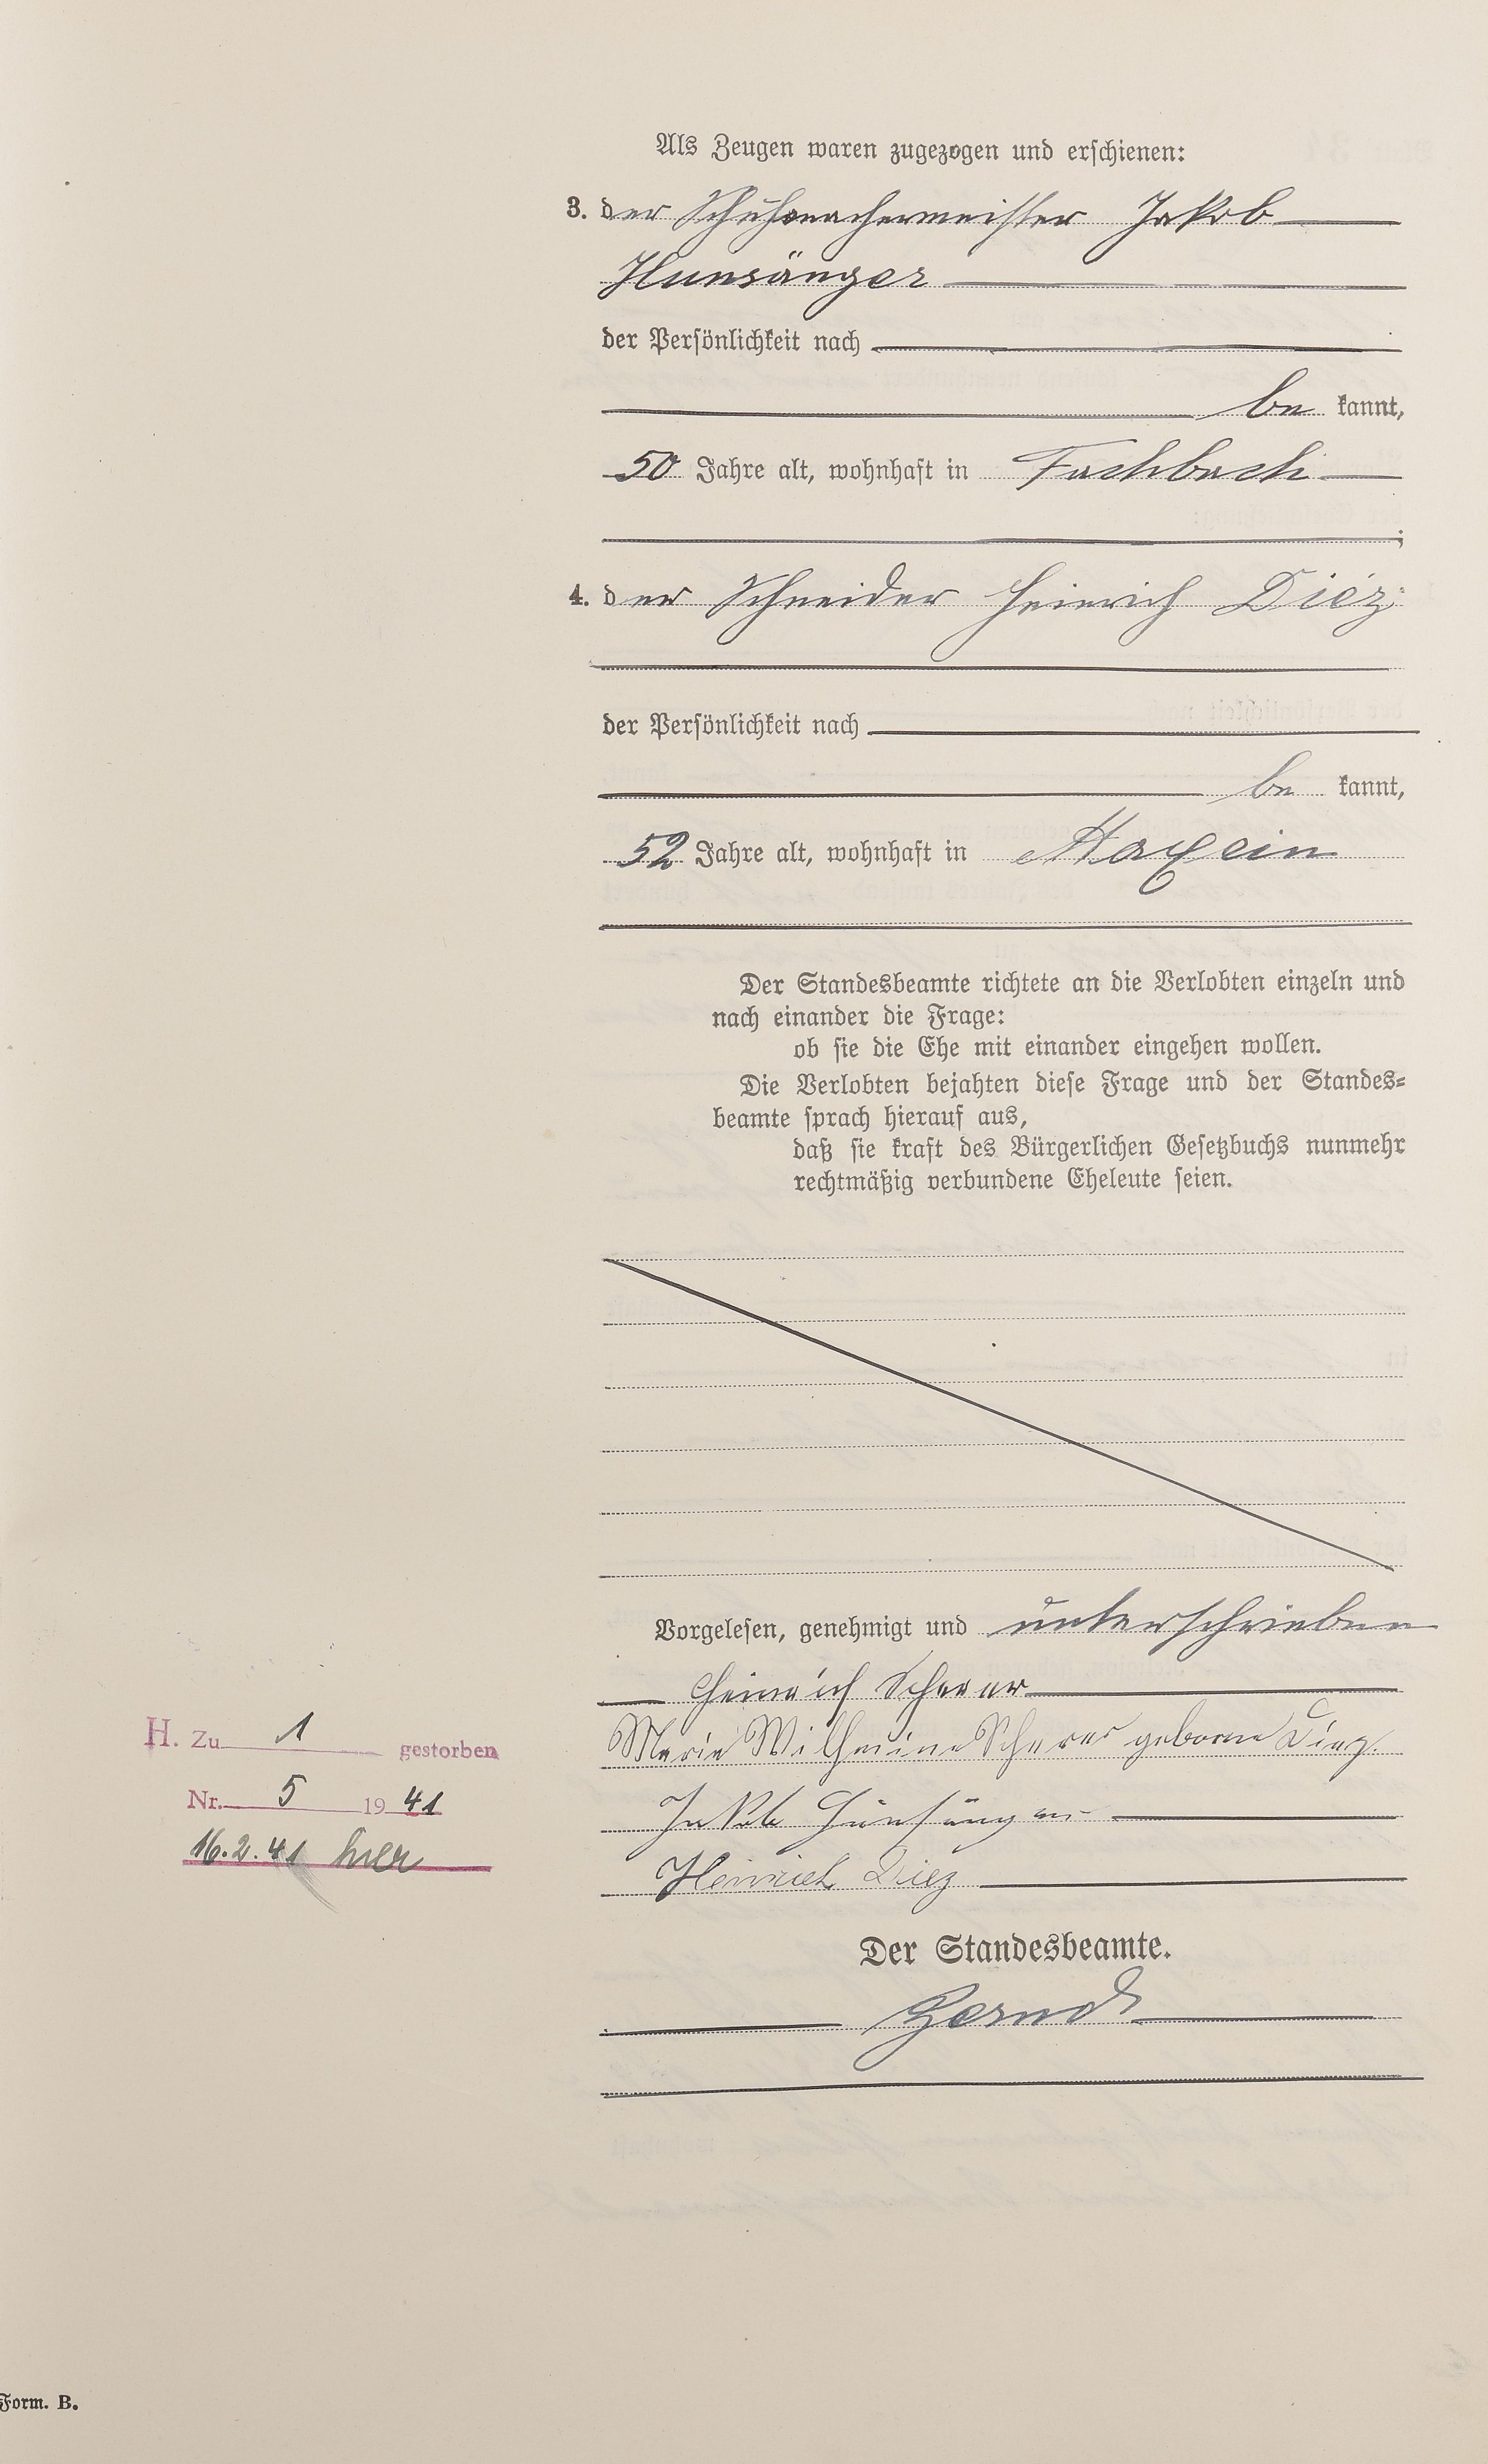 Als Zeugen waren zugezogen und erschienen:
3. der Schuhmachermeister Jakob
Hunsänger
der Persönlichkeit nach
be kannt,
50 Jahre alt, wohnhaft in Fachbach
;
4. der Schneider Heinrich Diez
der Persönlichkeit nach
be kannt,
52 Jahre alt, wohnhaft in Maxsein
Der Standesbeamte richtete an die Verlobten einzeln und
nach einander die Frage:
ob sie die Ehe mit einander eingehen wollen.
Die Verlobten bejahten diese Frage und der Standes-
beamte sprach hierauf aus,
daß sie kraft des Bürgerlichen Gesetzbuchs nunmehr
rechtmäßig verbundene Eheleute seien.
Vorgelesen, genehmigt und unterschrieben
Heinrich Scherer
Marie Wilhelmine Scherer geborne Diez.
Jakob Hunsänger
Heinrich Diez
Der Standesbeamte.
H. Zu 1 gestorben
Nr. 5 19 41
16.2.41 hier
Form. B.